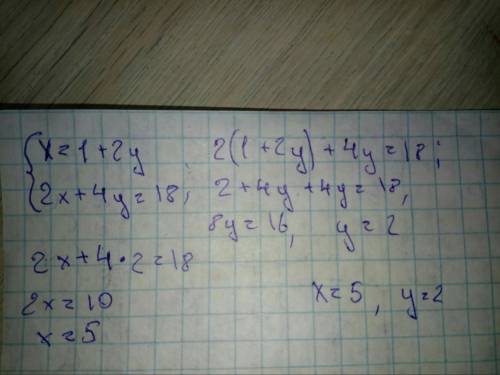 {x=1+2y
2x+4y=18;
2(1+2y)+4y=18;
2+4y+4y=18,
8y=16, y=2
2x+4•2=18
2x=10
x=5
x=5, y=2